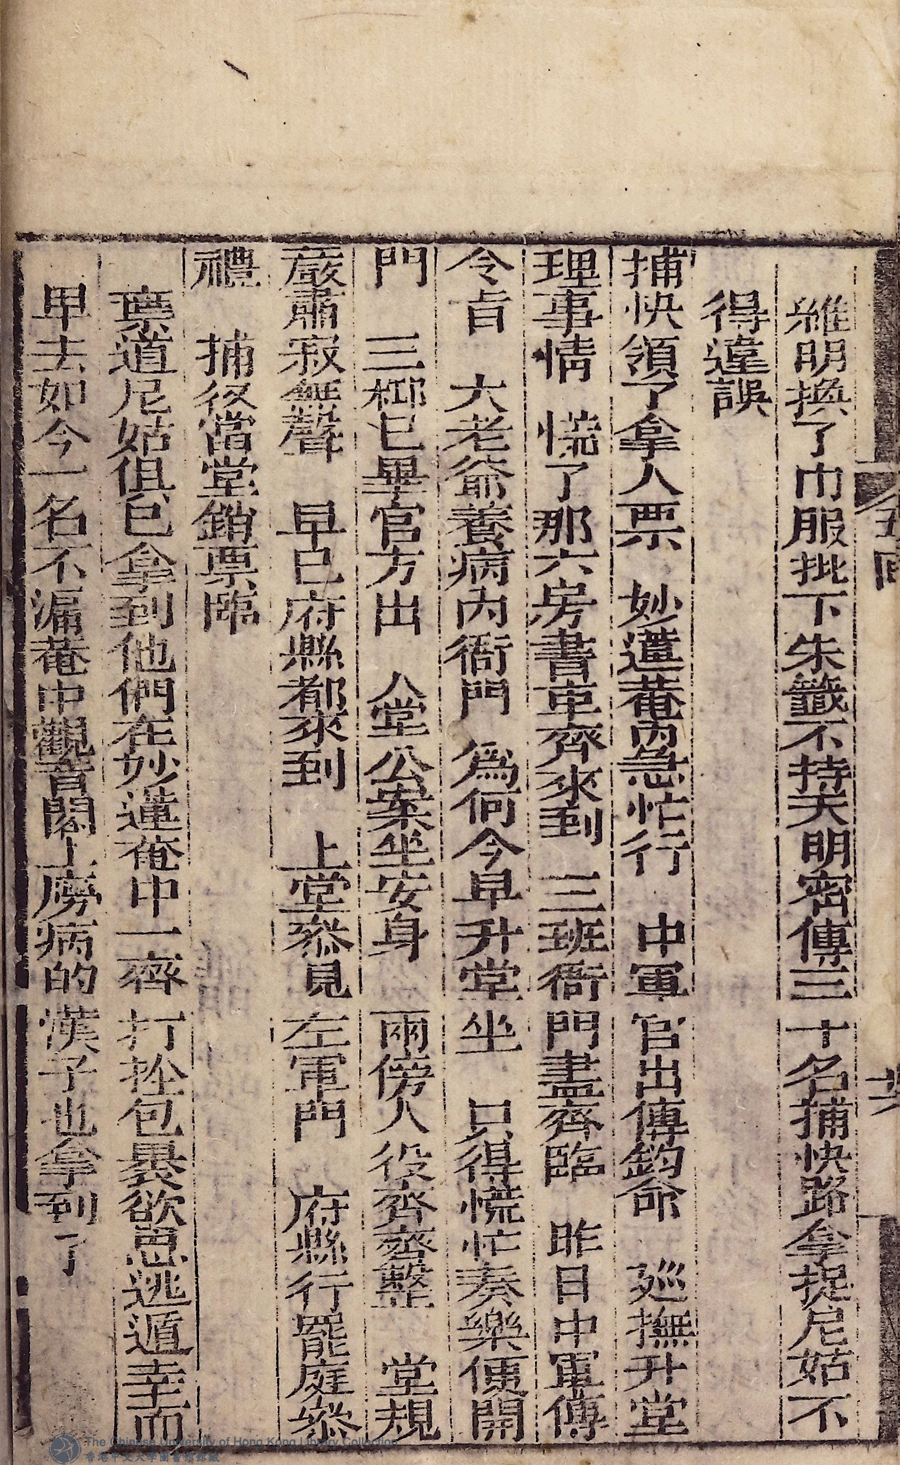 維明換了巾服批下朱籤不持天明密傳三十名捕快路拿捉尼姑不
得違誤
捕快領了拿人票 妙蓮菴內急忙行 中軍官出傳鈞命 廵撫升堂
理事情 慌了那六房書吏齊來到 三班衙門盡齊臨 昨日中軍傳
令旨 大老爺養病內衙門 為何今早升堂坐 只得慌忙奏樂便開
門 三梆已畢官方出 公堂公案坐安身 兩傍人役齊齊整 堂規
嚴肅寂無聲 早已府縣都來到 上堂叅見左軍門 府縣行罷庭叅
禮 捕役當堂銷票臨
稟道尼姑俱已拿到他們在妙蓮菴中一齊打拴包裹欲思逃遁幸而
早去如今一名不漏菴中觀音閣上癆病的漢子也拿到了
五回
共
The Chinese University of Hong Kong Library Collection
香港中文大學圖書館館藏